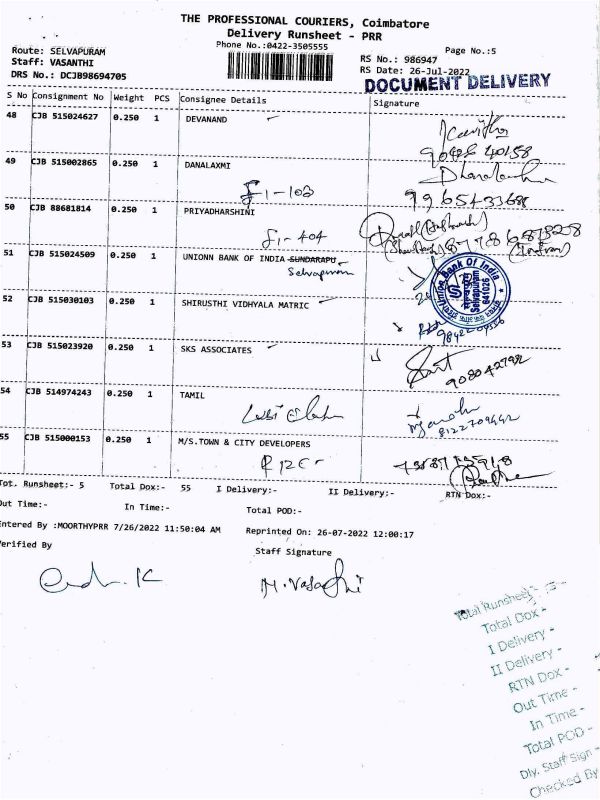 THE PROFESSIONAL COURIERS, Coimbatore
Delivery Runsheet - PRR
Phone No.:0422-3505555
Page No.:5
Route: SELVAPURAM
Staff: VASANTHI
DRS No.: DCJB98694705
RS No.: 986947
RS Date: 26-Jul-2022
DOCUMENT DELIVERY
S No Consignment No Weight PCS Consignee Details Signature
48 CJB 515024627 0.250 1 DEVANAND
49 CJB 515002865 0.250 1 DANALAXMI
F1-103
50 CJB 88681814 0.250 1 PRIYADHARSHINI
F1-404
51 CJB 515024509 0.250 1 UNIONN BANK OF INDIA SUNDARAPU
Selvapuram
Union Bank Of India
Selvapuram
641026
52 CJB 515030103 0.250 1 SHIRUSTHI VIDHYALA MATRIC
53 CJB 515023920 0.250 1 SKS ASSOCIATES
54 CJB 514974243 0.250 1 TAMIL
8122709442
55 CJB 515000153 0.250 1 M/S.TOWN & CITY DEVELOPERS
Tot. Runsheet:- 5 Total Dox:- 55 I Delivery:- II Delivery:- RTN Dox:-
Out Time:- In Time:- Total POD:-
Entered By :MOORTHYPRR 7/26/2022 11:50:04 AM Reprinted On: 26-07-2022 12:00:17
Verified By Staff Signature
Total Runsheet -
Total Dox -
I Delivery -
II Delivery -
RTN Dox -
Out Time -
In Time -
Total POD -
Dly. Staff Sign -
Checked By